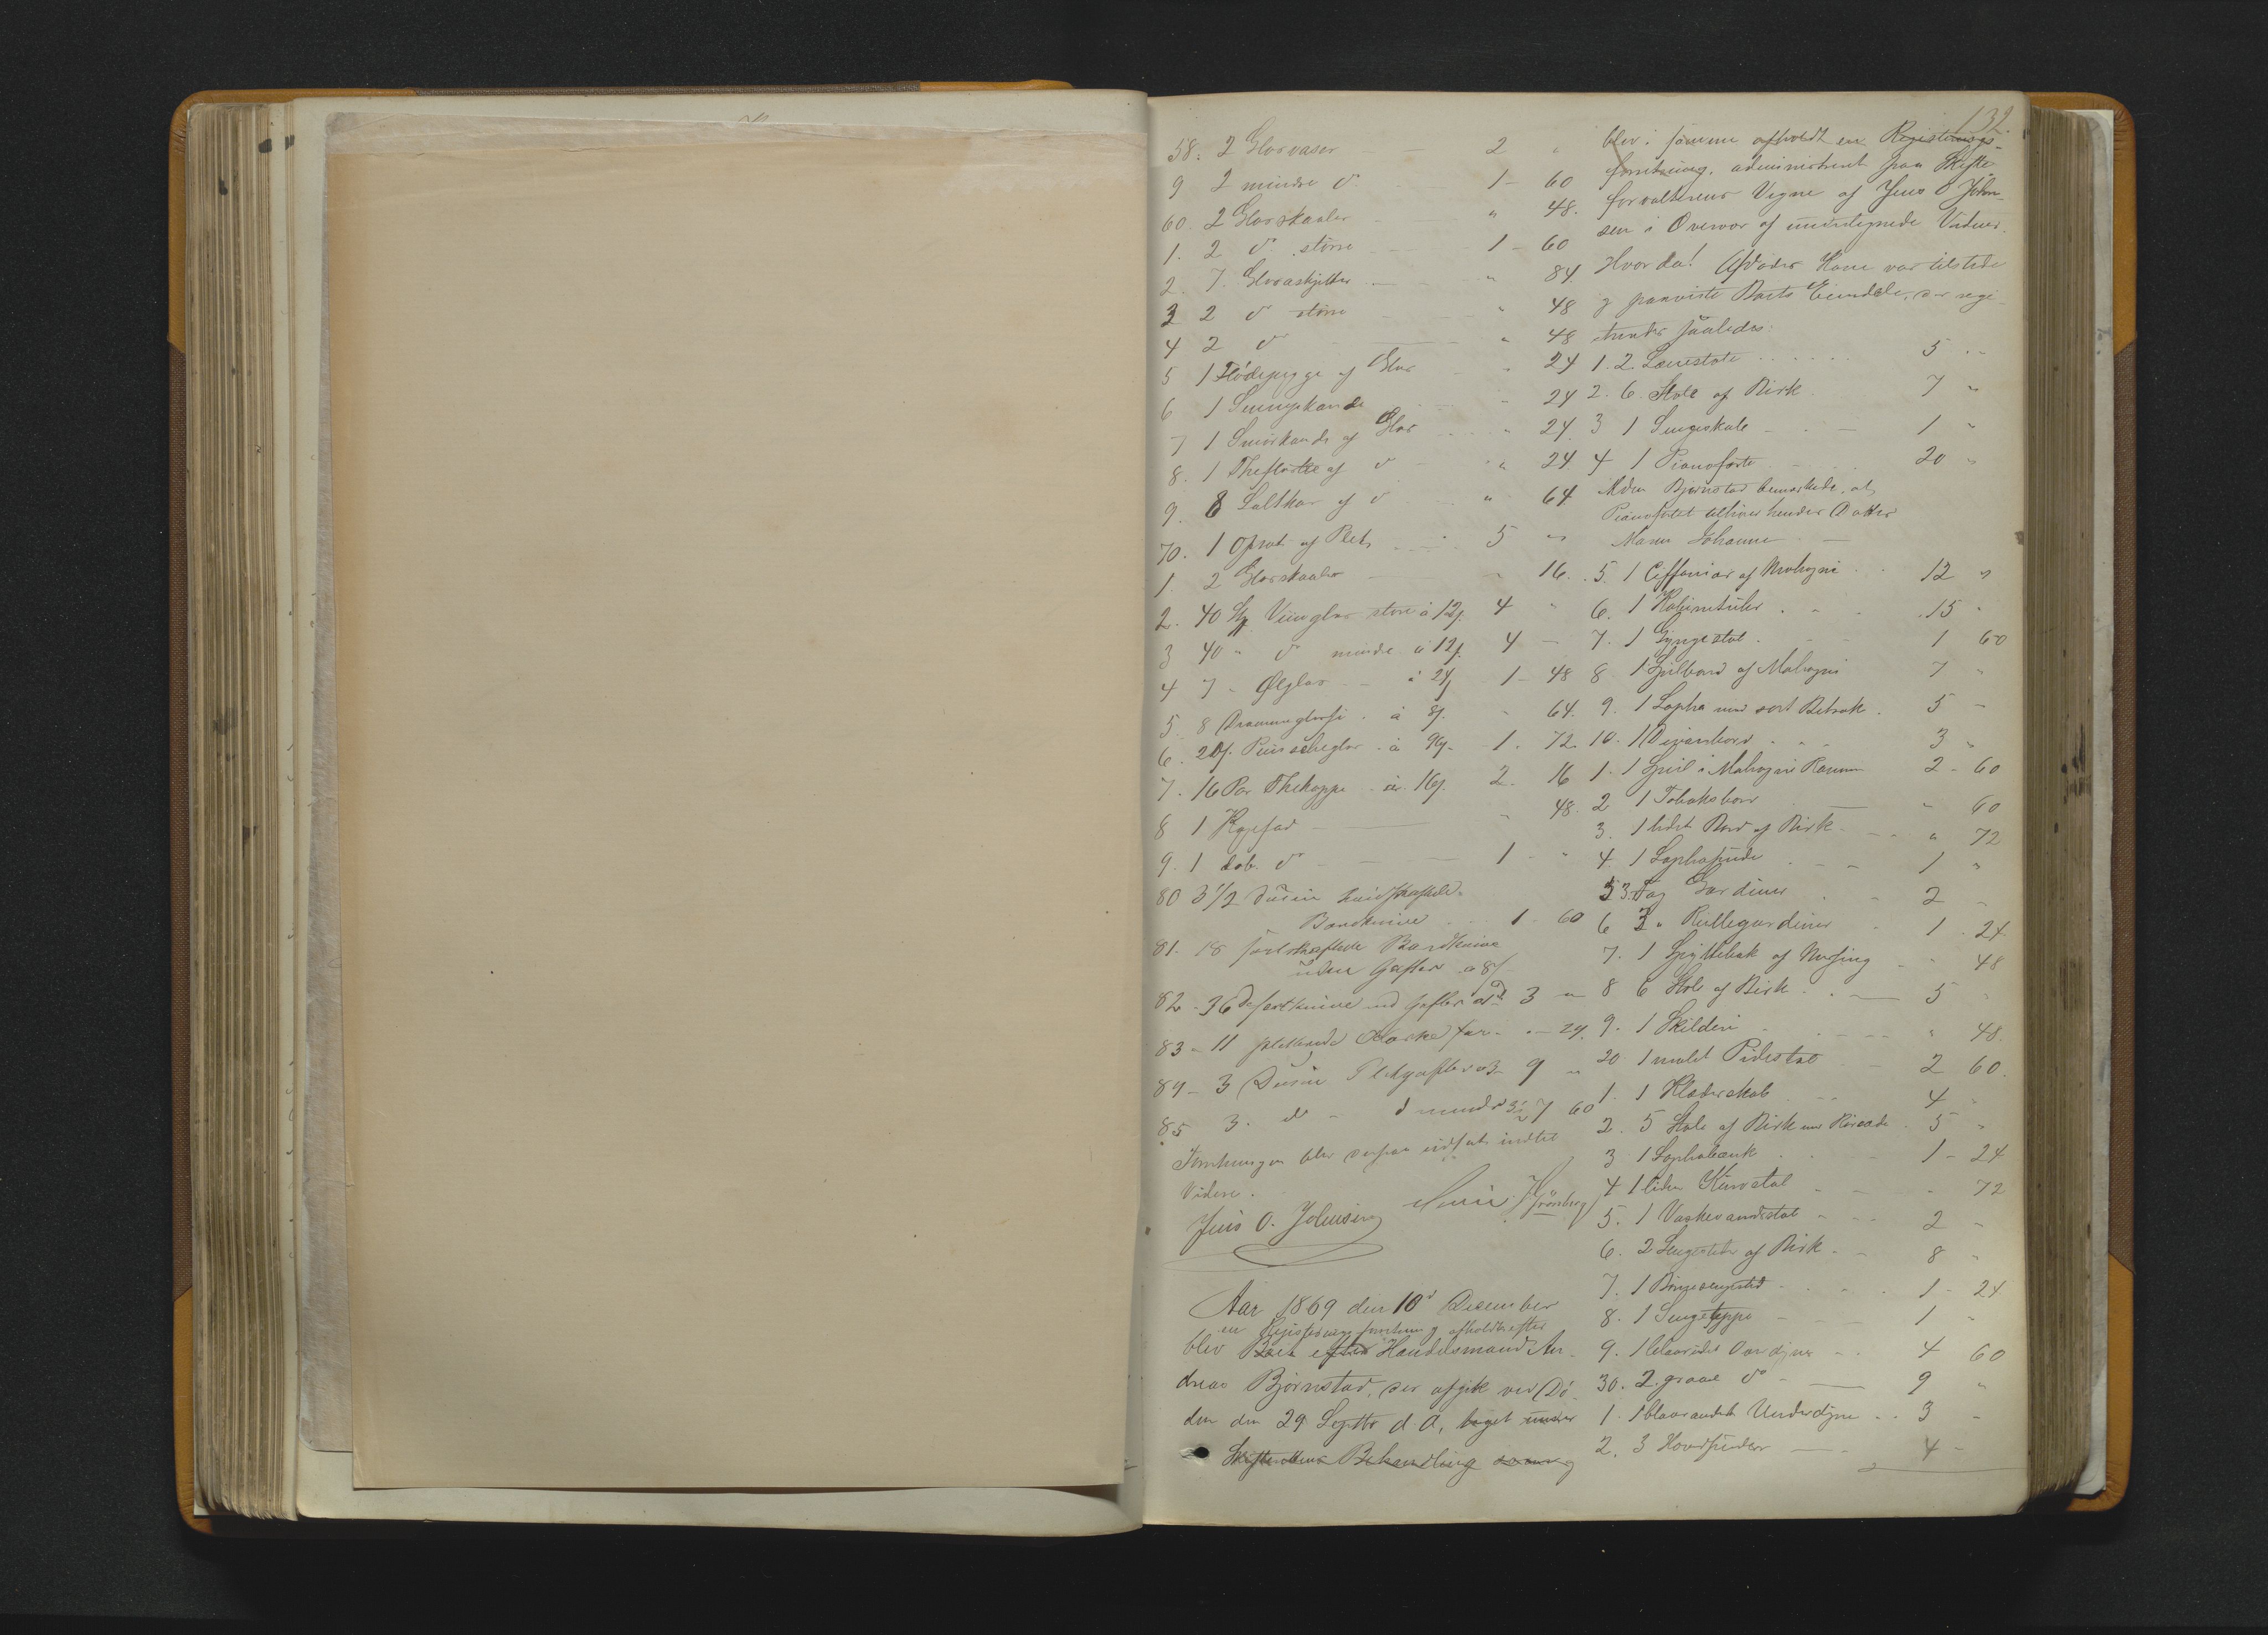 132
58. 2 Glasvaser — — 2 "
9 2 mindre do 1 - 60
60. 2 Glasskaaler — " 48.
1. 2 do større — 1 - 60
2. 7. Glasaskjetter — " 84.
3 2 do større — " 48
4 2 do — " 48
5 1 Flødemugge af Glas — " 24
6 1 Sennopskande — " 24
7 1 Smørkande af Glas — " 24.
8. 1 Theflaske af do — " 24.
9. 8 Saltkar af do — " 64
70. 1 Opsats af Plet — 5 "
1. 2 Glasskaaler — " 16.
2. 40 St. Viinglas store à 12/. 4 "
3 40 " do mindre à 12/. 4 —
4 7 - Ølglas — à 24/ 1 - 48
5. 8 Drammeglas . à 8/. " 64.
6. 20/. Punscheglas . à 9/. 1. 72.
7. 16 Par Thekopper . à 16/. 2. 16
8 1 Kagefad — " 48.
9. 1 dob. do — — 1 - "
80 3 1/2 Dusin hvidskaftede
Bordknive . . 1 - 60
81. 18 sortskaftede Bordknive
uden Gafler à 8/
82 - 36 Desertknive med Gafler 3 "
83 - 11 pletterede — 24.
84 - 3 Dusin Pletgafler à 3 9 "
85 3. do - do mindre 7 60
Forretningen blev derpaa sluttet indtil
Videre.
Jens O. Johnsen
Aar 1869 den 10de December
en Registreringsforretning afholdt efter
blev Boet efter Handelsmand An-
dreas Bjørnstad, der afgik ved Dø-
den den 29 Septbr d. A, taget under
Skifterettens Behandling samme
blev i samme afholdt en Registrerings-
forretning, administreret paa Skifte-
forvalterens Vegne af Jens O John-
sen i Overvær af undertegnede Vidner.
Hvorda! Afdødes Kone var tilstede
og paaviste Boets Eiendele, der regi-
streredes saaledes:
1. 2 Lænestole . . . . . . 5 . "
2. 6. Stole af Birk 7 "
3 1 Sengeskab — . . — 1 "
4 1 Pianoforte . — . . 20 "
Mdm Bjørnstad bemærkede, at
Pianofortet tilhører hendes Datter
Maren Johanne . —
5. 1 Ciffonier af Mahogni . . 12 "
6. 1 Kabinetuhr . . . 15 "
7. 1 Gyngestol . . . 1 60
8 1 Spilbord af Mahogni 7 "
9. 1 Sopha med sort Betræk . 5 —
10. 1 Divanbord . . . 3 "
1. 1 Speil i Mahogni Ramme 2 - 60
2 1 Tobaksbord . — " 60
3. 1 lidet Bord af Birk . . . " 72
4. 1 Sophapude . — — 1 "
5 3. Fag Gardiner . . 2 —
6 3 " Rullegardiner . 1 . 24
7. 1 Spyttebak af Messing — " 48
8 6 Stole af Birk . . — 5 "
9. 1 Skilderi — . . . " 48.
20. 1 malet Pidestal — 2 60.
1. 1 Klædeskab . . . 4 "
2. 5 Stole af Birk 5 "
3 1 Sophabænk . . . 1 - 24
4 1 liden Kurvstol . . . " 72
5. 1 Vaskevandsstol . . . 2 -
6. 2 Sengesteder af Birk . . 8 "
7. 1 Børnesengested . . . . 1 - 24
8. 1 Sengetæppe — — — 1 "
9. 1 blaarudet Overdyne . . 4 60
30. 2. graae do - — 9 "
1. 1 blaarandet Underdyne . . 3 -
2. 3 Hovedpuder — . 4 -